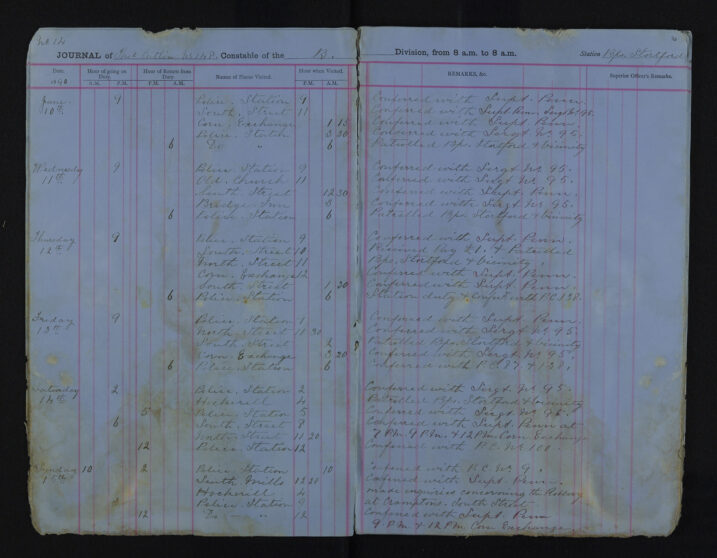 No 14
JOURNAL of Constable of the B. Division, from 8 a.m. to 8 a.m. Station Bps. Stortford
Date. Hour of going on Duty. Hour of Return from Duty. Names of Places Visited. Hour when Visited. REMARKS, &c. Superior Officer's Remarks.
1890 A.M. P.M. P.M. A.M. P.M. A.M.
June 9 Police Station 9 Conferred with Supt. Penn
10th South Street 11 Conferred with Supt. Penn Sergt No 95.
Corn Exchange 1 15 Conferred with Supt. Penn
Police Station 3 30 Conferred with Sergt No 95.
6 Do " 6 Patrolled Bps. Stortford & vicinity
Wednesday 9 Police Station 9 Conferred with Sergt No 95.
11th Old Church 11 Conferred with Sergt No 95.
South Street 12 30 Conferred with Supt. Penn.
Bridge Inn 3 Conferred with Sergt No 95.
6 Police Station 6 Patrolled Bps. Stortford & vicinity
Thursday 9 Police Station 9 Conferred with Supt. Penn.
12th South Street 10 Received & Patrolled
North Street 11 Bps. Stortford & vicinity
Corn Exchange 12 Conferred with Supt. Penn.
South Street 1 20 Conferred with Supt. Penn.
6 Police Station 6 Station duty & Conf'd with P.C. 138.
Friday 9 Police Station Conferred with Supt. Penn.
13th North Street 11 20 Conferred with Sergt No 95
South Street 2 Patrolled Bps. Stortford & vicinity
Corn Exchange 3 20 Conferred with Sergt No 95.
6 Police Station 6 Conferred with P.C. 87 & 138.
Saturday 2 Police Station 2 Conferred with Sergt No 95.
14th Hockerill 4 Patrolled Bps. Stortford & vicinity
5 Police Station 5 Conferred with Sergt No 95.
6 South Street 8 Conferred with Supt. Penn at
North Street 11 20 7 P.M. 9 P.M. & 12 P.M. Corn Exchange
12 Police Station 12 Conferred with P.C. No 100.
Sunday 10 2 Police Station 10 Conferred with P.C. No 9.
15th South Mills 12 20 Conferred with Supt. Penn
Hockerill 4 made enquiries concerning the Robbery
Police Station 9 at Cramptons, South Street
12 Do " 12 Conferred with Supt. Penn
9 P.M. & 12 P.M. Corn Exchange